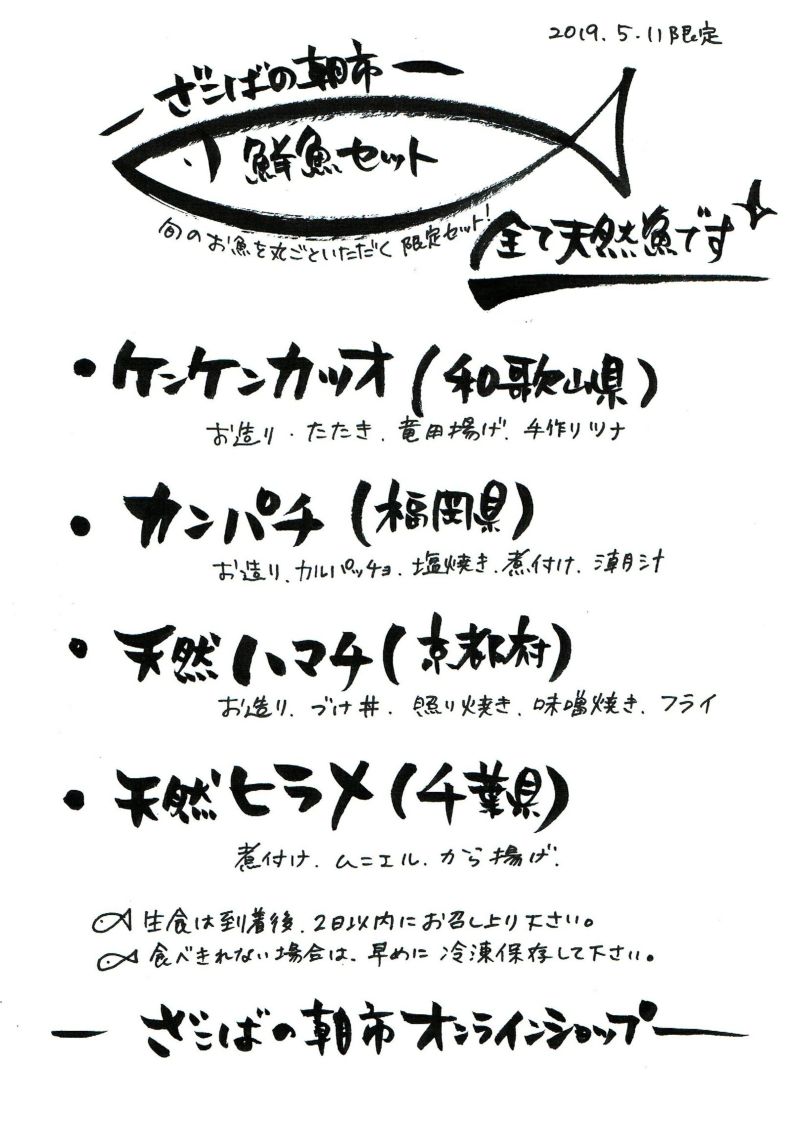 2019.5.11限定
ー ざこばの朝市 ー
鮮魚セット
旬のお魚を丸ごといただく限定セット!
全て天然魚です
・ケンケンカツオ(和歌山県)
お造り・たたき、竜田揚げ、手作りツナ
・カンパチ(福岡県)
お造り、カルパッチョ、塩焼き、煮付け、潮汁
・天然ハマチ(京都府)
お造り、づけ丼、照り焼き、味噌焼き、フライ
・天然ヒラメ(千葉県)
煮付け、ムニエル、から揚げ、
生食は到着後、2日以内にお召し上り下さい。
食べきれない場合は、早めに冷凍保存して下さい。
ー ざこばの朝市オンラインショップ ー